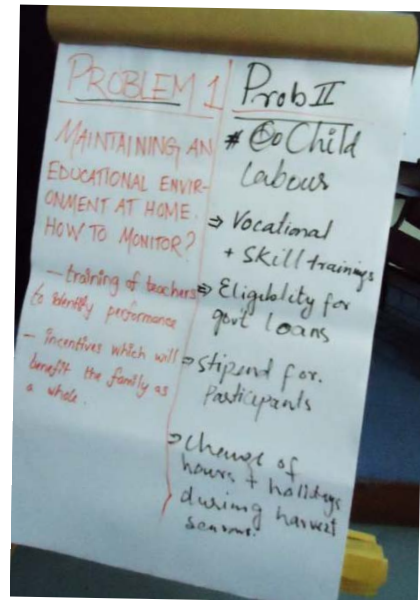 PROBLEM 1
MAINTAINING AN
EDUCATIONAL ENVIR-
ONMENT AT HOME.
HOW TO MONITOR?
— training of teachers
to identify performance
— incentives which will
benefit the family as
a whole.
Prob II
# Child
Labour
⇒ Vocational
+ Skill trainings
⇒ Eligiblity for
govt loans
⇒ Stipend for.
Participants
⇒ Change of
hours + holidays
during harvest